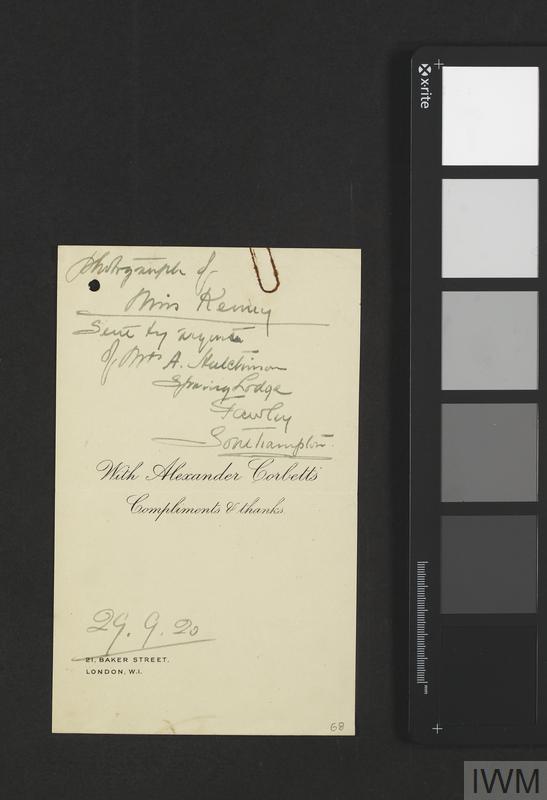 photograph of
Miss Kenny
Sent by request
of Mrs A. Hutchinson
Spring Lodge
Fawley
Southampton.
With Alexander Corbett's
Compliments & thanks
29. 9. 20
21, BAKER STREET,
LONDON, W.I.
68
x-rite
mm
IWM